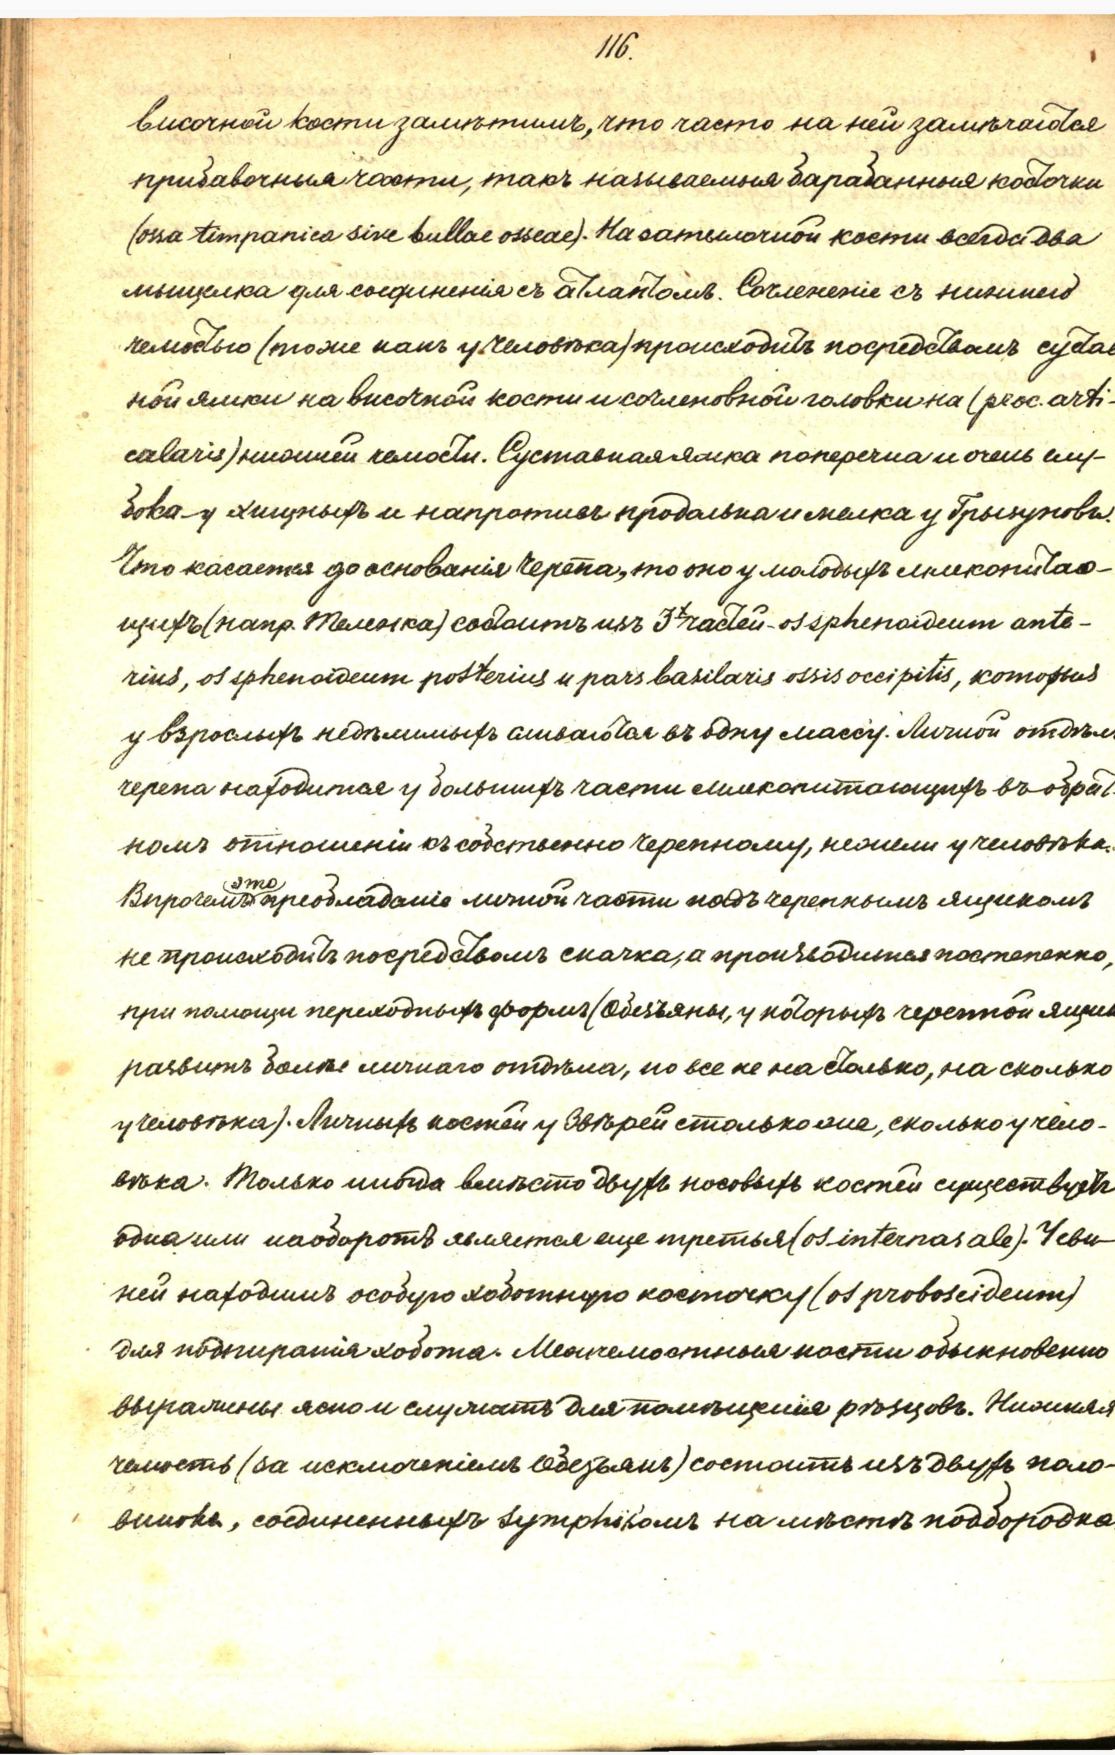 116.
височной кости замѣтимъ, что часто на ней замѣчаются
прибавочныя части, такъ называемыя барабанныя косточки
(ossa timpanica sive bullae osseae). На затылочной кости всегда два
мыщелка для соединенія съ атлантомъ. Сочлененіе съ нижнею
челюстью (тоже какъ у человѣка) происходитъ посредствомъ сустав
ной ямки на височной кости и сочленовной головки на (proc. arti-
calaris) нижней челюсти. Суставная ямка поперечна и очень глу-
бока у хищныхъ и напротивъ продольна и мелка у Грызуновъ.
Что касается до основанія черепа, то оно у молодыхъ млекопитаю-
щихъ (напр. Теленка) состоитъ изъ 3хъ частей - os sphenoideum ante-
rius, os sphenoideum posterius и pars basilaris ossis occipitis, которыя
у взрослыхъ недѣлимыхъ сливаются въ одну массу. Личной отдѣлъ
черепа находится у большихъ части млекопитающихъ въ обрат
номъ отношеніи къ собственно черепному, нежели у человѣка.
Впрочемъ это преобладаніе личной части надъ черепнымъ ящикомъ
не происходитъ посредствомъ скачка, а производится постепенно,
при помощи переходныхъ формъ (Обезъяны, у которыхъ черепной ящик
развитъ болѣе личнаго отдѣла, но все не на столько, на сколько
у человѣка). Личныхъ костей у Звѣрей столько же, сколько у чело-
вѣка. Только иногда вмѣсто двухъ носовыхъ костей существуетъ
одна или наоборотъ является еще третья (os internasale). У сви-
ней находимъ особую хоботную косточку (os proboscideum)
для подпиранія хобота. Межчелюстныя кости обыкновенно
выражены ясно и служатъ для помѣщенія рѣзцовъ. Нижняя
челюсть (за исключеніемъ Обезъянъ) состоитъ изъ двухъ поло-
винокъ, соединенныхъ symphiзомъ на мѣстѣ подбородка